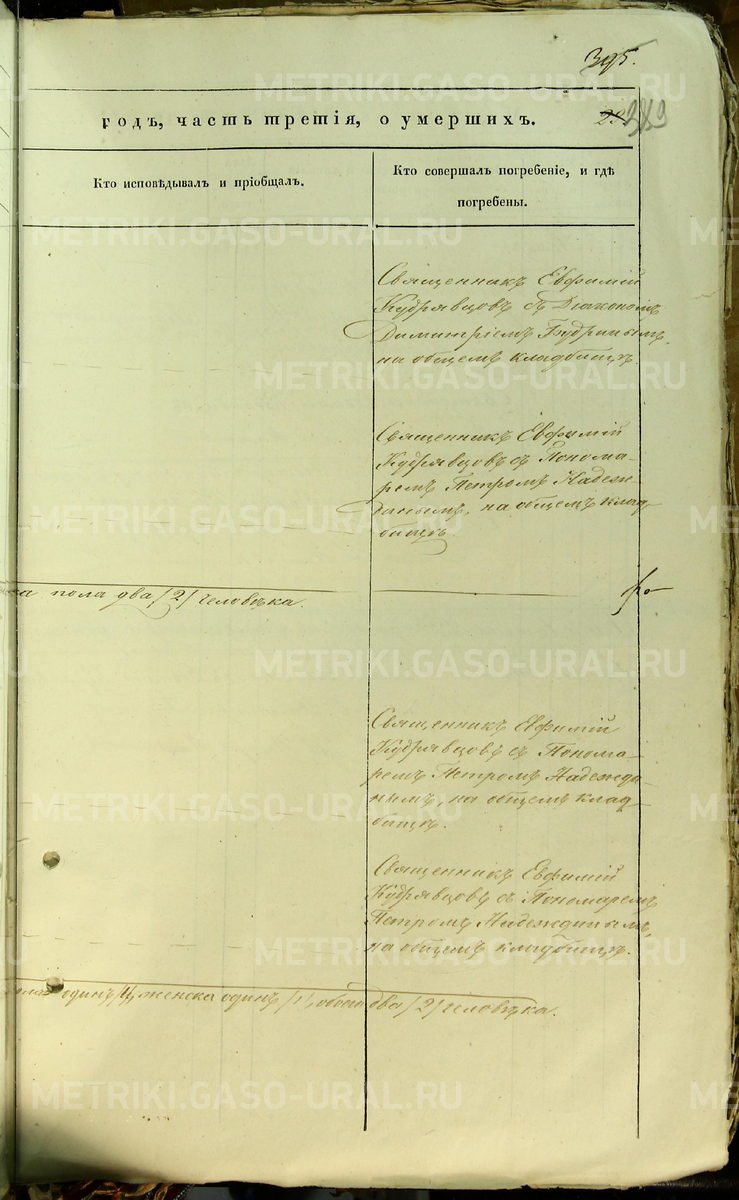 395.
годъ, часть третія, о умершихъ.
289
Кто исповѣдывалъ и пріобщалъ.
Кто совершалъ погребеніе, и гдѣ
погребены.
Священникъ Евфимій
Кудрявцовъ съ Діакономъ
Димитріемъ Будринымъ,
на общемъ кладбищѣ.
Священникъ Евфимій
Кудрявцовъ съ Понома-
ремъ Петромъ Надеж-
динымъ, на общемъ клад-
бищѣ.
пола два /2/ человѣка.
Священникъ Евфимій
Кудрявцовъ съ Понома-
ремъ Петромъ Надежди-
нымъ, на общемъ клад-
бищѣ.
Священникъ Евфимій
Кудрявцовъ съ Пономаремъ
Петромъ Надеждинымъ,
на общемъ кладбищѣ.
одинъ /1/, женска одинъ /1/, обоего два /2/ человѣка.
METRIKI.GASO-URAL.RU